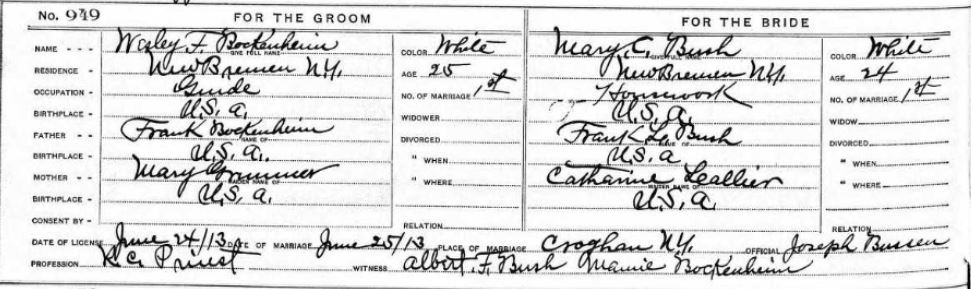 No. 949 FOR THE GROOM FOR THE BRIDE
NAME - - - Wesley F. Bockenheim COLOR White Mary C. Bush COLOR White
GIVE FULL NAME GIVE FULL NAME
RESIDENCE - New Bremen N.Y. AGE 25 New Bremen N.Y. AGE 24
OCCUPATION - Guide NO. OF MARRIAGE 1st Housework NO. OF MARRIAGE 1st
BIRTHPLACE - U.S.A. WIDOWER U.S.A. WIDOW
FATHER - - Frank Bockenheim DIVORCED Frank L. Bush DIVORCED
NAME OF NAME OF
BIRTHPLACE - U.S.A. " WHEN U.S.A " WHEN
MOTHER - - Mary " WHERE Catharine " WHERE
MAIDEN NAME OF MAIDEN NAME OF
BIRTHPLACE - U.S.A. U.S.A.
CONSENT BY - RELATION RELATION
DATE OF LICENSE June 24/13 DATE OF MARRIAGE June 25/13 PLACE OF MARRIAGE Croghan N.Y. OFFICIAL Joseph Bussen
PROFESSION R.C. Priest WITNESS Albert F. Bush Mamie Bockenheim